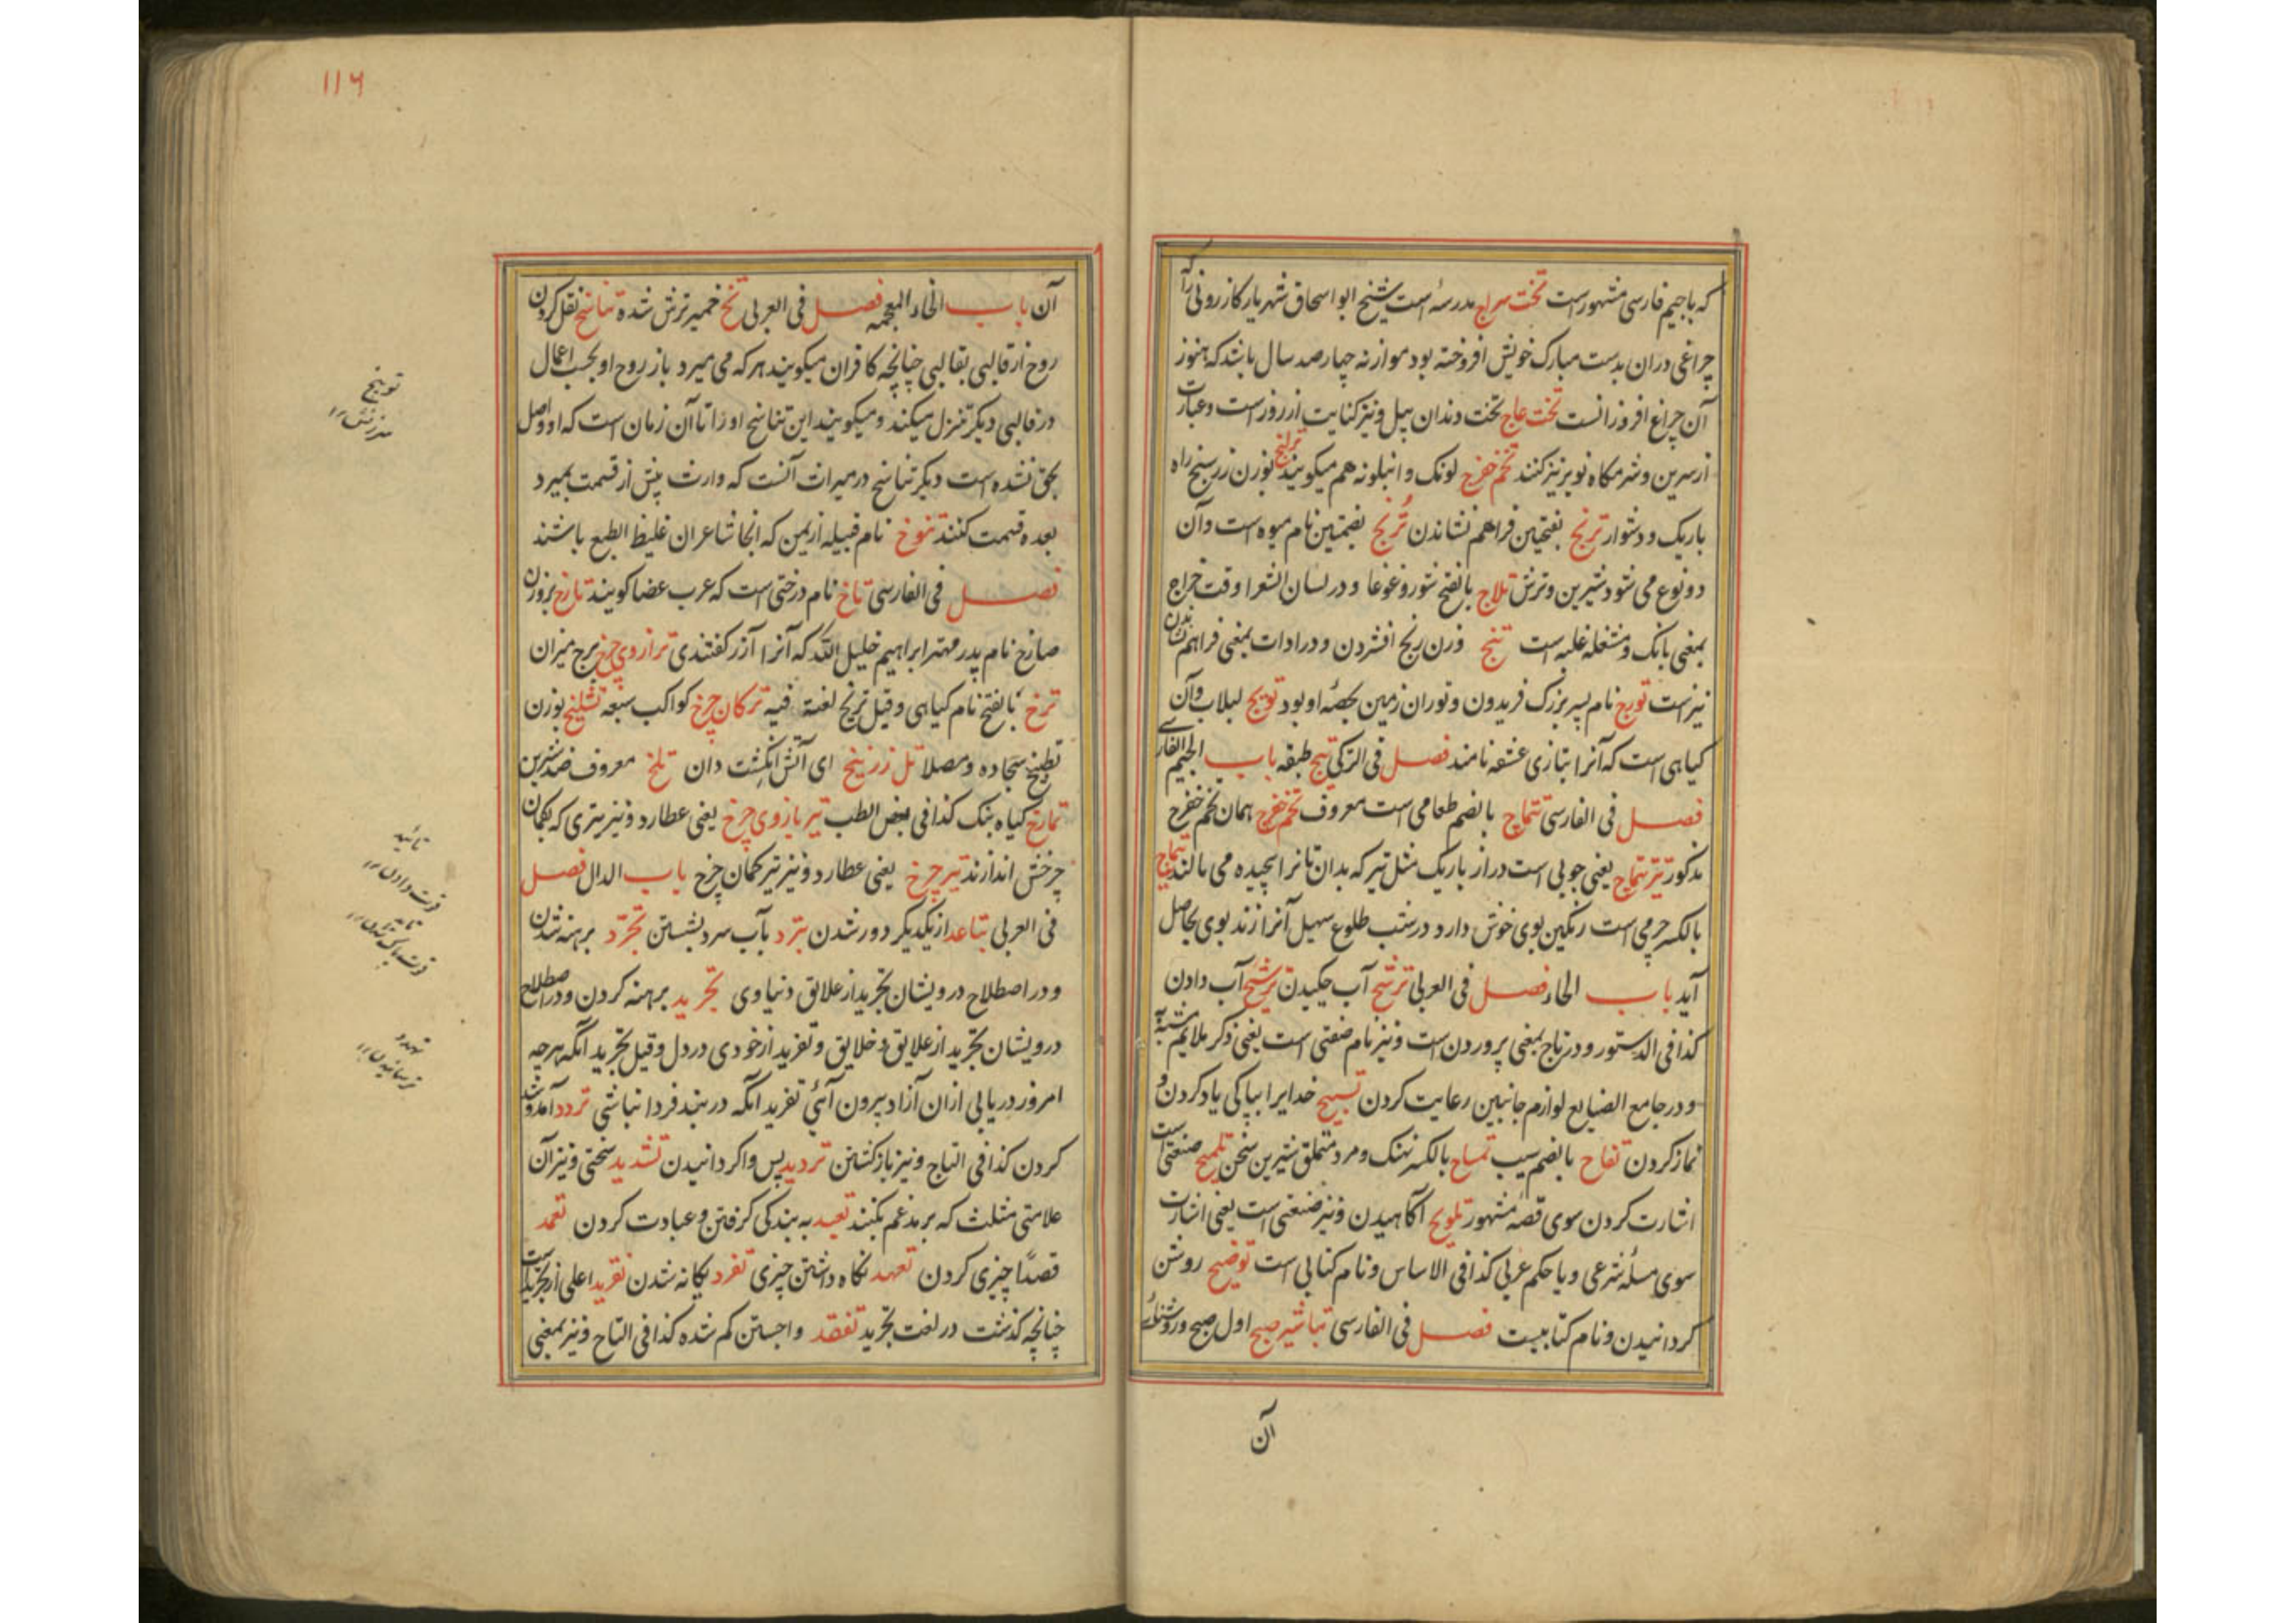 که باجیم فارسی مشهور است تخت سراج مدرسه است شیخ ابو اسحاق شهریار کازرونی را که
چراغی دران بدست مبارک خویش افروخته بود موازنه چهارصد سال باشد که هنوز
آن چراغ افروزانست تخت عاج تخت دندان پیل و نیز کنایت از روز است و عبارت
از سرین و شرمگاه نو بر نیز کنند تخم خفرج لونک و انبلونه هم میکویند ترلنج بوزن زرسنج راه
باریک و دشوار ترنج بفتحین فراهم نشاندن تُرنج بضمتین نام میوه است و آن
دو نوع می شود شیرین و ترش تلاج بالفتح شور و غوغا و در لسان الشعرا وقت خراج
بمعنی بانک و مشغله غلبه است تنج وزن رنج افشردن و در ادات بمعنی فراهم
نیز است تورج نام پسر بزرک فریدون و توران زمین بحصه او بود تویج لبلاب وآن
کیاهی است که آنرا بتازی عشقه نامند فصل فی الترکی تیج طبقه باب الجیم الفارسی
فصل فی الفارسی تتماج بالضم طعامی است معروف تخم خفرج همان تخم خفرج
مذکور تیر تتماج یعنی چوبی است دراز باریک مثل تیر که بدان نانرا پیچیده می مالند تیماج
بالکسر چرمی است رنکین بوی خوش دارد در شب طلوع سهیل آنرا زند بوی بحاصل
آید باب الحاء فصل فی العربی ترشح آب چکیدن ترشیح آب دادن
کذا فی الدستور و در تاج بمعنی پروردن است و نیز نام صنعتی است یعنی ذکر ملایم مشبه به
و در جامع الصنایع لوازم جانبین رعایت کردن تسبیح خدایرا بپاکی یاد کردن و
نماز کردن تفاح بالضم سیب تمساح بالکسر نهنک و مرد متملق شیرین سخن تلمیح صنعتی است
اشارت کردن سوی قصه مشهور تلویح آکاهیدن و نیز صنعتی است یعنی اشارت
سوی مسئله شرعی و یا حکم عربی کذا فی الاساس و نام کتابی است توضیح روشن
کردانیدن و نام کتابیست فصل فی الفارسی تباشیر صبح اول صبح و روشنائی
آن
۱۱۶
آن باب الخاء المعجمه فصل فی العربی تخ خمیر ترش شده تناسخ نقل کردن
روح از قالبی بقالبی چنانچه کافران میکویند هر که می میرد باز روح او بحسب اعمال
در قالبی دیکر تنزل میکند و میکویند این تناسخ او را تا آن زمان است که او واصل
بحق نشده است دیکر تناسخ در میراث آنست که وارث پیش از قسمت بمیرد
بعده قسمت کنند تنوخ نام قبیله از یمن که انجا شاعران غلیظ الطبع باشند
فصل فی الفارسی تاخ نام درختی است که عرب عضا کویند تارخ بروزن
صارخ نام پدر مهتر ابراهیم خلیل الله که آنرا آزر کفتندی ترازوی چرخ برج میزان
ترخ بالفتح نام کیاهی و قیل تریخ لغة فیه ترکان چرخ کواکب سبعه تشلیخ بوزن
تطبیخ سجاده و مصلا تل زرنیخ ای آتش انکشت دان تلخ معروف ضد شیرین
تمارخ کیاه بنک کذا فی بعض الطب تیر بازوی چرخ یعنی عطارد و نیز تیری که بکمان
چرخش اندازند تیر چرخ یعنی عطارد و نیز تیر کمان چرخ باب الدال فصل
فی العربی تباعد از یکدیکر دور شدن تبرد بآب سرد بشستن تجرّد برهنه شدن
و در اصطلاح درویشان تجرید از علایق دنیاوی تجرید برهنه کردن و در اصطلاح
درویشان تجرید از علایق و خلایق و تفرید از خودی در دل و قیل تجرید آنکه هرچه
امروز دریابی ازان آزاد بیرون آئی تفرید آنکه در بند فردا نباشی تردد آمد و شد
کردن کذا فی التاج و نیز باز کشتن تردید پس واکردانیدن تشدید سختی و نیز آن
علامتی مثلث که بر مدغم بکنند تعبد به بندکی کرفتن و عبادت کردن تعمد
قصدًا چیزی کردن تعهد نکاه داشتن چیزی تفرد یکانه شدن تفرید اعلی از تجرید است
چنانچه کذشت در لغت تجرید تفقد واجستن کم شده کذا فی التاج و نیز بمعنی
توبیخ
سرزنش ۱۲
تائید
قوت دادن ۱۲
تهدد
ترسانیدن ۱۲